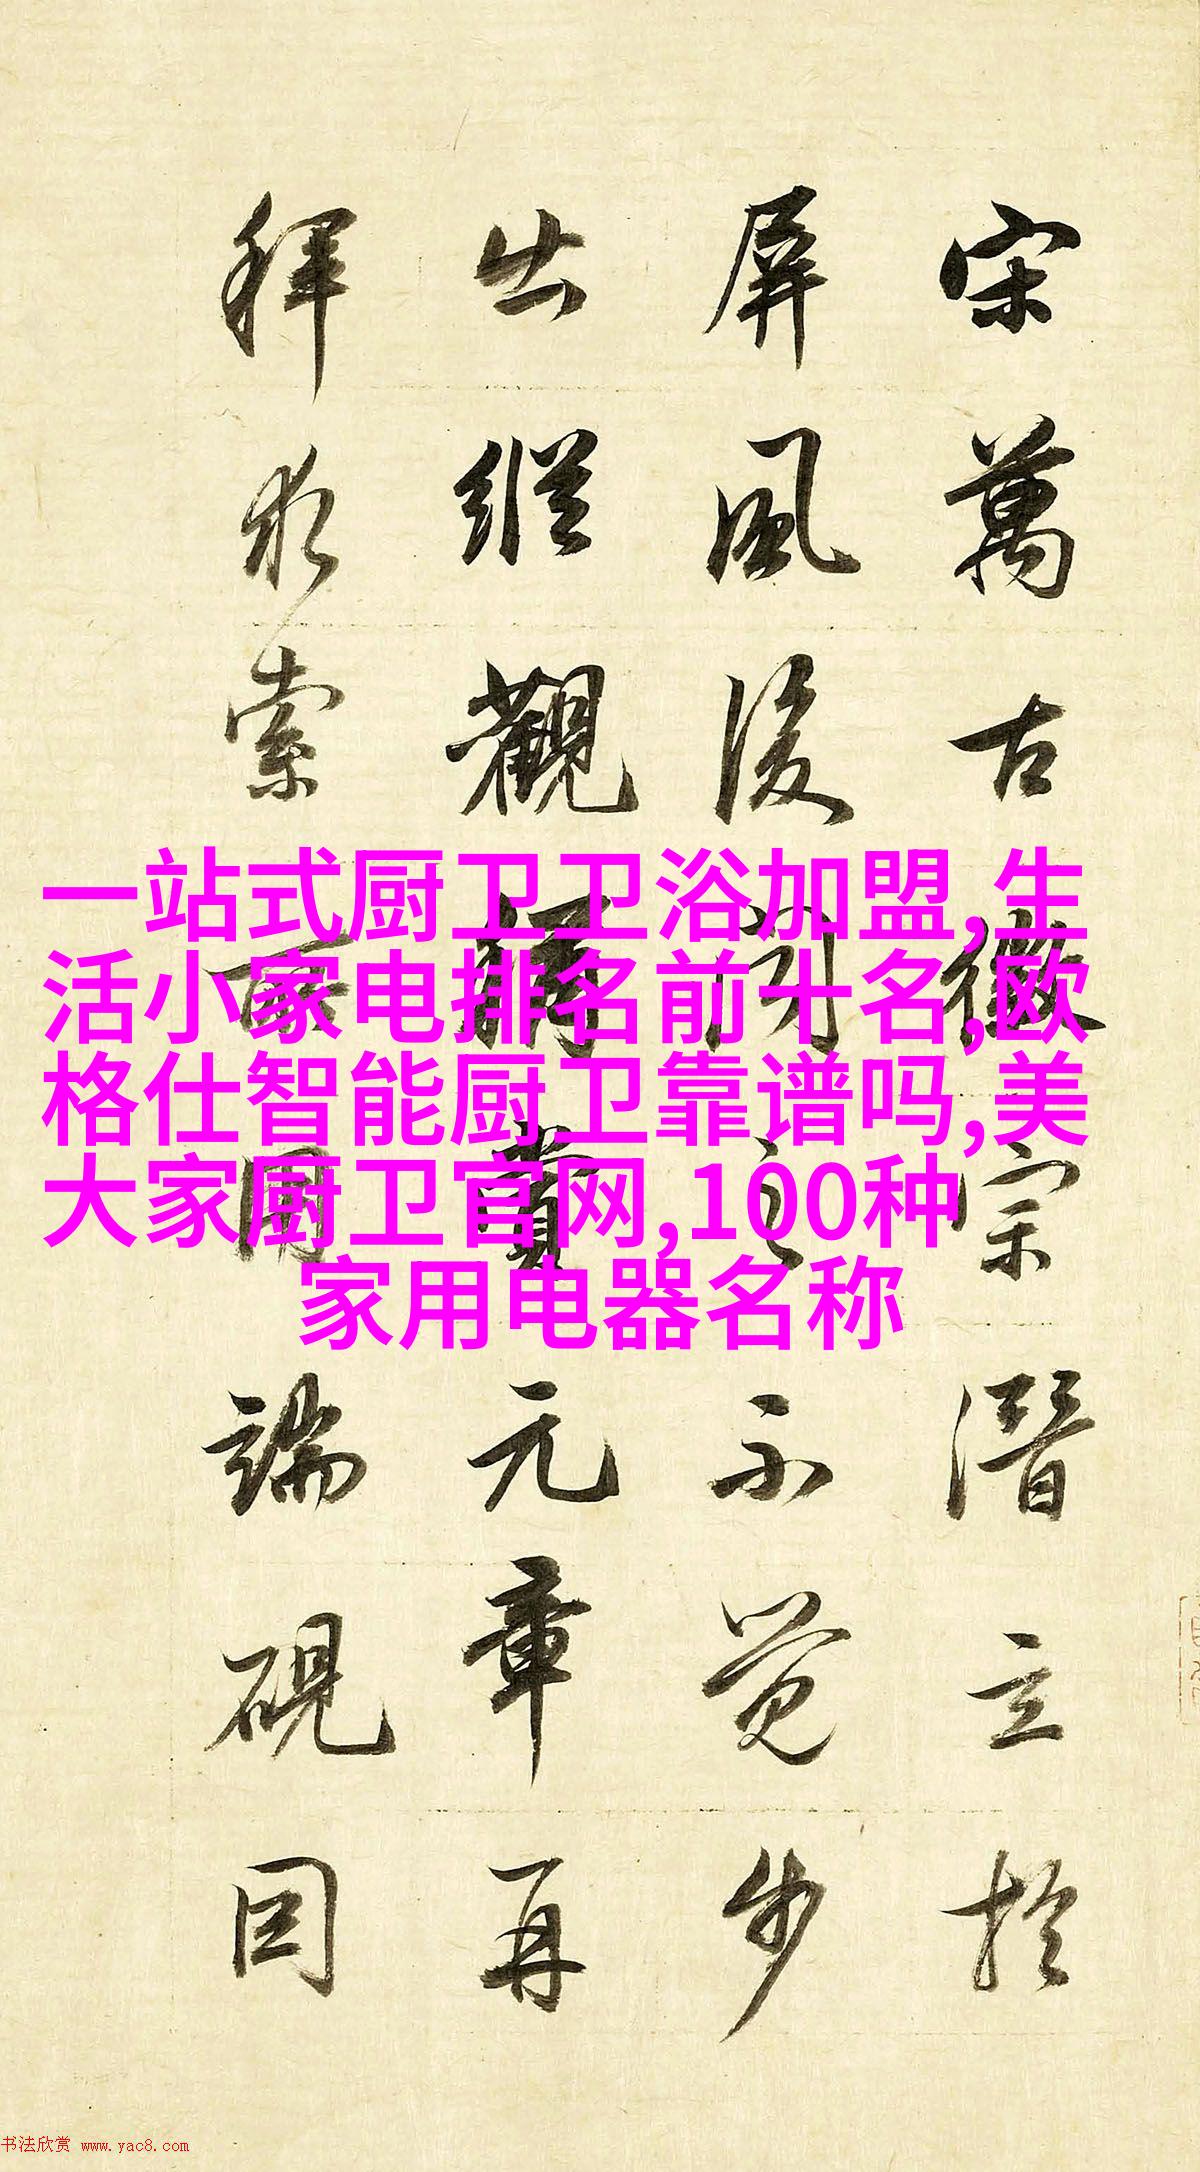 宋萬古徽宗潛立於
屏風後聞之不覺步
出縱觀稱賞元章再
拜求索所用端硯因
一站式厨卫卫浴加盟,生
活小家电排名前十名,欧
格仕智能厨卫靠谱吗,美
大家厨卫官网,100种
家用电器名称
书法欣赏 www.yac8.com